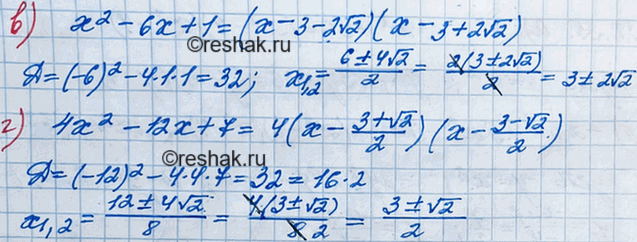 в) x² - 6x + 1 = (x - 3 - 2√2)(x - 3 + 2√2)
©reshak.ru
Д = (-6)² - 4·1·1 = 32; x₁,₂ = (6 ± 4√2)/2 = 2(3 ± 2√2)/2 = 3 ± 2√2
г) 4x² - 12x + 7 = 4(x - (3+√2)/2)(x - (3-√2)/2)
©reshak.ru
Д = (-12)² - 4·4·7 = 32 = 16·2
x₁,₂ = (12 ± 4√2)/8 = 4(3 ± √2)/8 2 = (3 ± √2)/2